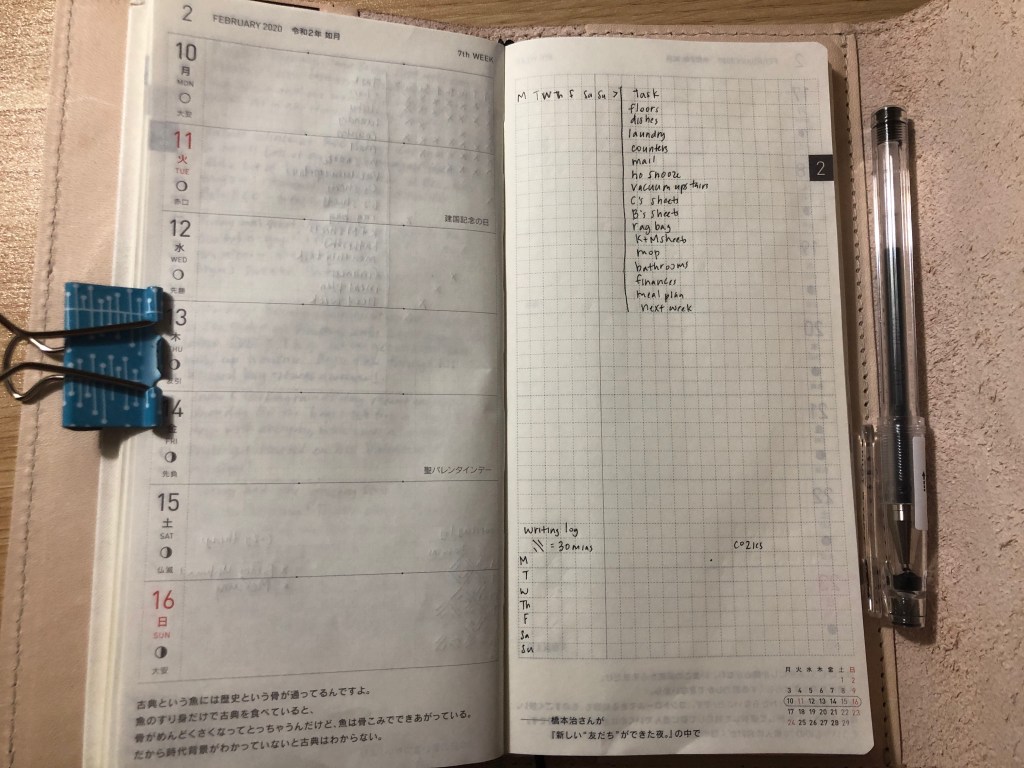 2 FEBRUARY 2020 令和2年 如月
7th WEEK
10
月
MON
大安
11
火
TUE
赤口
建国記念の日
12
水
WED
先勝
13
木
14
FRI
先負
聖バレンタインデー
15
土
SAT
仏滅
16
日
SUN
大安
古典という魚には歴史という骨が通ってるんですよ。
魚のすり身だけで古典を食べていると、
骨がめんどくさくなってとっちゃうんだけど、魚は骨こみでできあがっている。
だから時代背景がわかっていないと古典はわからない。
M T W Th F Sa Su > task
floors
dishes
laundry
counters
mail
no snooze
vacuum upstairs
C's sheets
B's sheets
rag bag
K+M sheets
mop
bathrooms
finances
meal plan
next week
2
writing log
= 30 mins
cozies
M
T
W
Th
F
Sa
Su
月 火 水 木 金 土 日
1 2
3 4 5 6 7 8 9
10 11 12 13 14 15 16
17 18 19 20 21 22 23
24 25 26 27 28 29
橋本治さんが
『新しい“友だち”ができた夜。』の中で